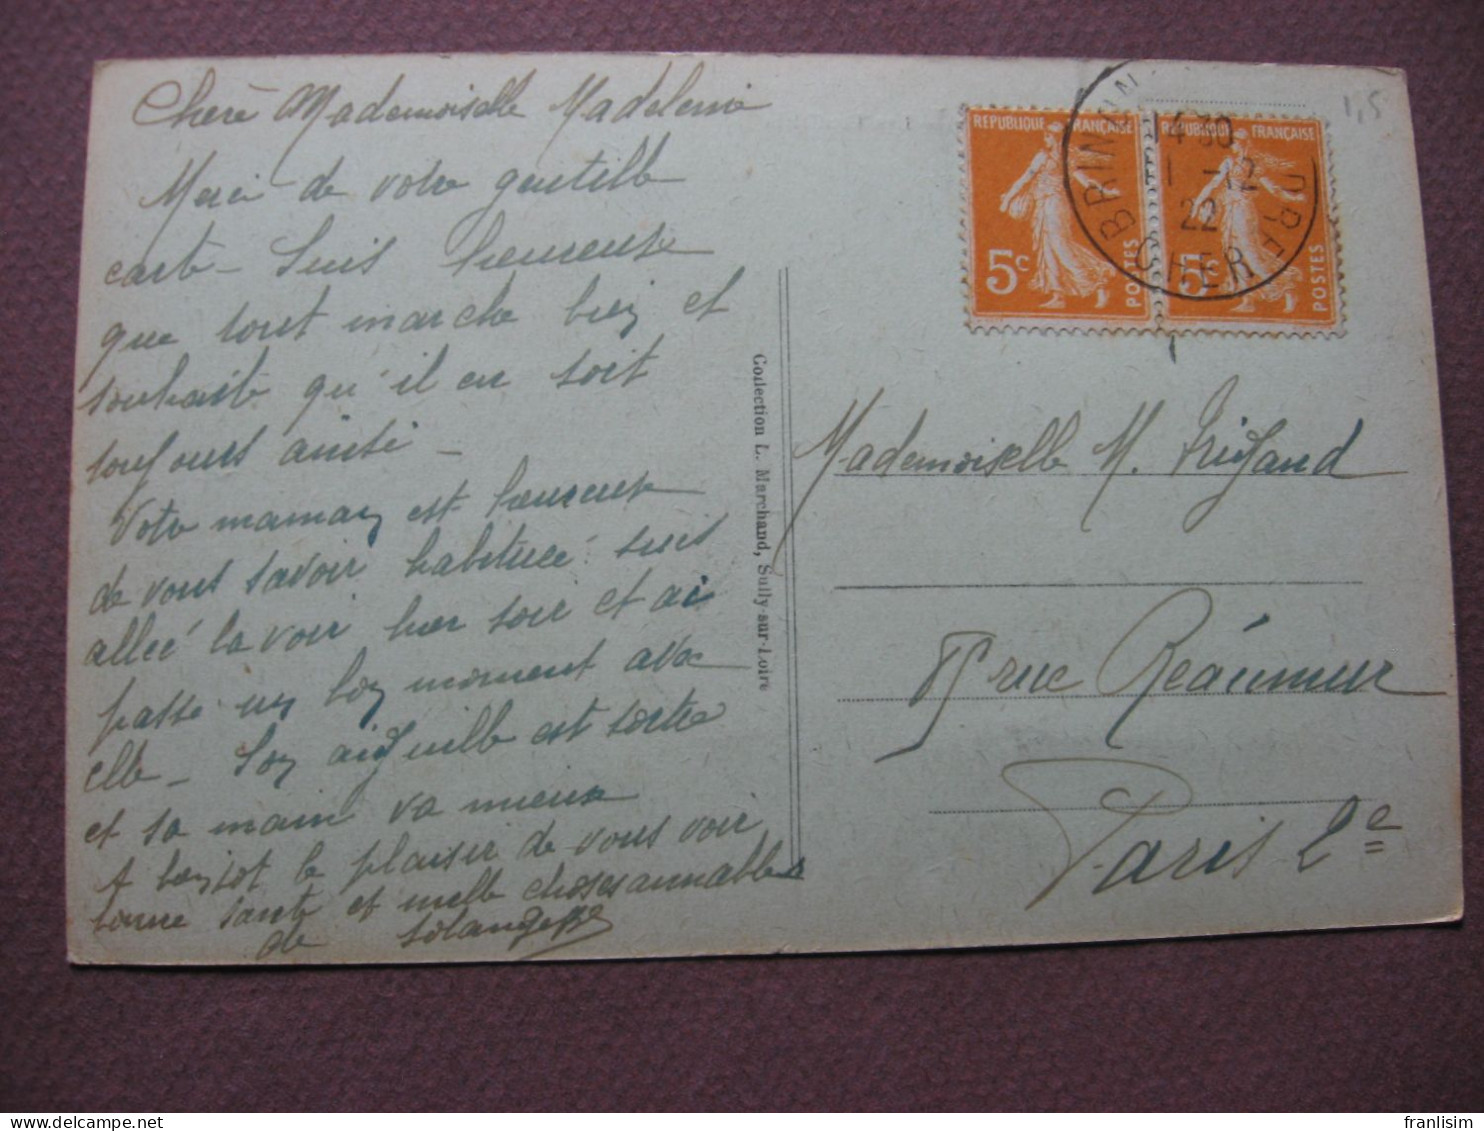 Chère Mademoiselle Madeleine
Merci de votre gentille
carte - Suis heureuse
que tout marche bien et
souhaite qu'il en soit
toujours ainsi -
Votre maman est heureuse
de vous savoir habituée suis
allée la voir hier soir et ai
passé un bon moment avec
elle - Son aiguille est sortie
et sa main va mieux
A bientôt le plaisir de vous voir
bonne santé et mille choses aimables
de Solange
Collection L. Marchand, Sully-sur-Loire
1,5
REPUBLIQUE FRANÇAISE
5c
POSTES
REPUBLIQUE FRANÇAISE
5c
POSTES
BRINON
14 30
1 -12
22
CHER
Mademoiselle M.
rue Réaumur
Paris 2e
franlisim